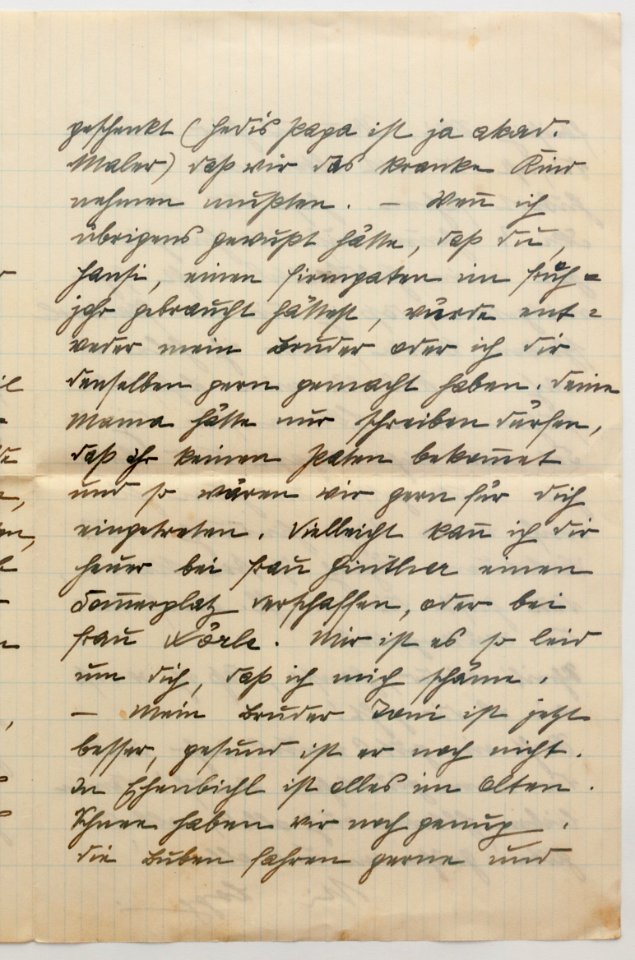 geschenkt (Hedis Papa ist ja akad.
Maler) daß wir das kranke Kind
nehmen mußten. – Wen̄ ich
übrigens gewußt hätte, daß du,
Hansi, einen Firmpaten im Früh=
jahr gebraucht hättest, würde ent=
weder mein Bruder oder ich dir
denselben gern gemacht haben. Deine
Mama hätte nur schreiben dürfen,
daß ihr keinen Paten bekom̄et
und so wären wir gern für dich
eingetreten. Vielleicht kan̄ ich dir
heuer bei Frau Ginther einen
Som̄erplatz verschaffen, oder bei
Frau Lörle. Mir ist es so leid
um dich, daß ich mich schäme.
– Mein Bruder Toni ist jetzt
besser, gesund ist er noch nicht.
In Ehenbichl ist alles im Alten.
Schnee haben wir noch genug.
Die Buben fahren gerne und